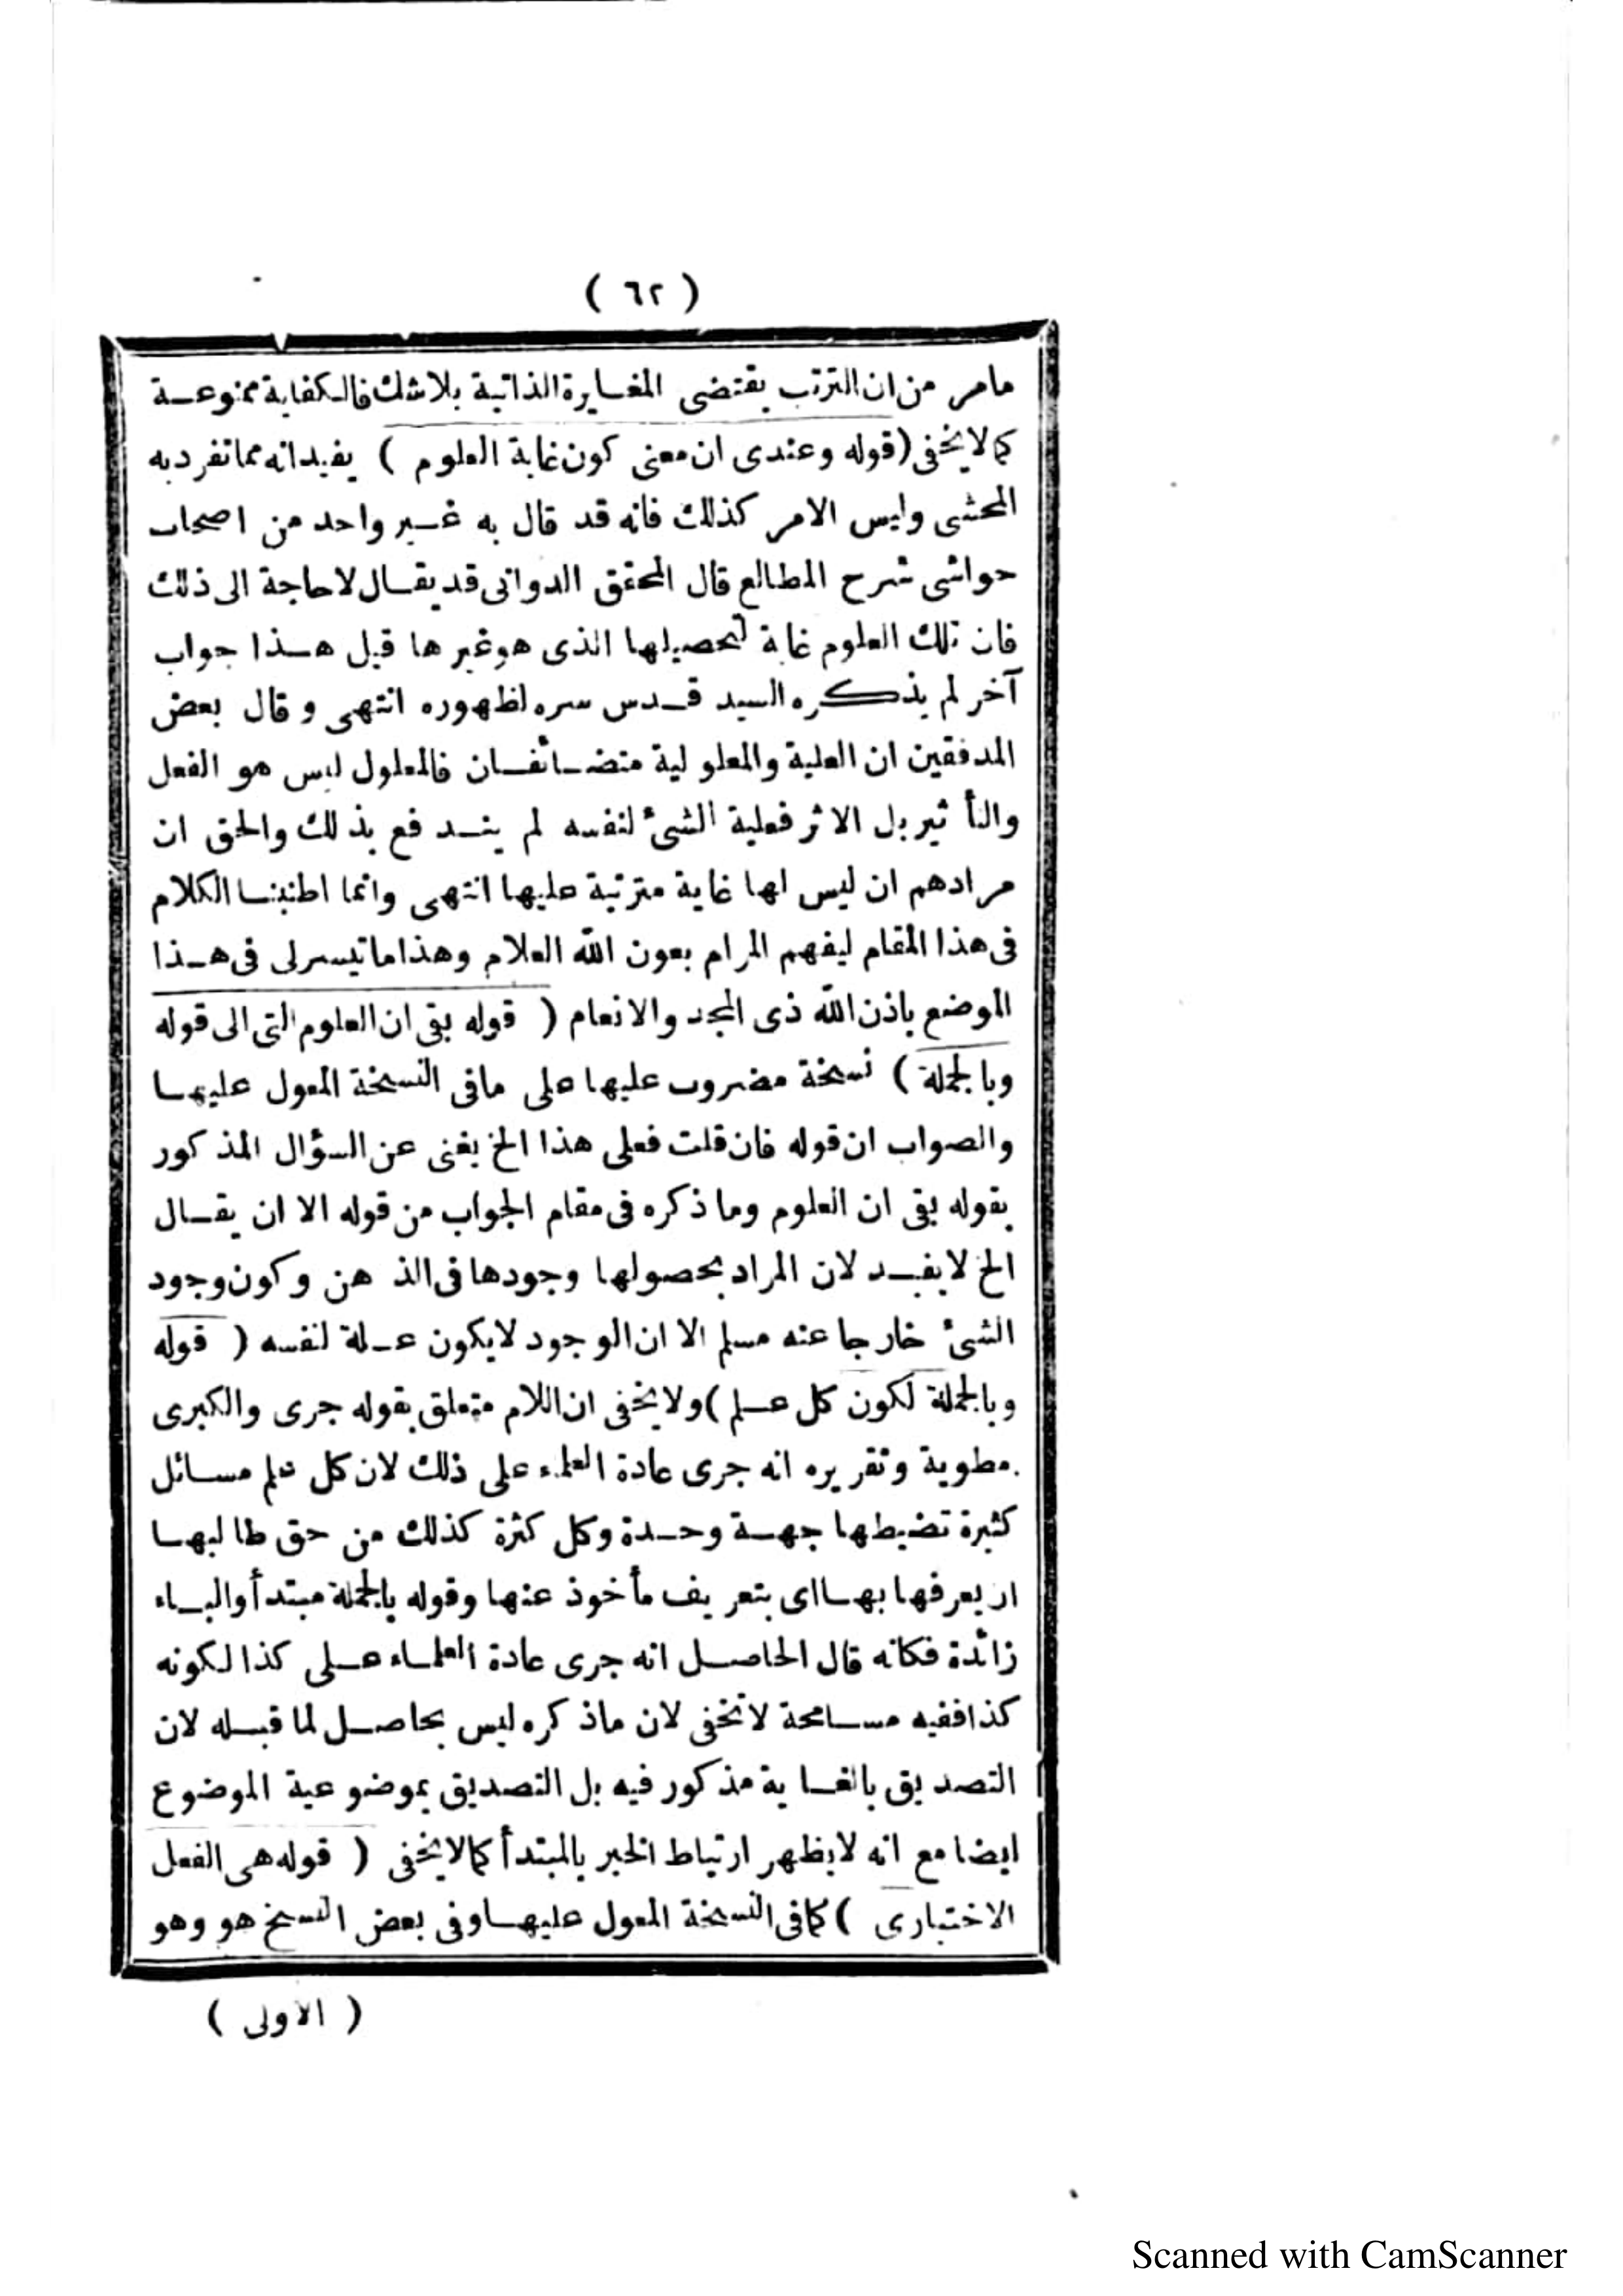 ( ٦٢ )
مامر من ان الترتب يقتضى المغايرة الذاتية بلاشك فالكفاية ممنوعة
كما لا يخفى ( قوله وعندى ان معنى كون غاية العلوم ) يفيد انه مما تفرد به
المحشى وليس الامر كذلك فانه قد قال به غير واحد من اصحاب
حواشى شرح المطالع قال المحقق الدوانى قد يقال لا حاجة الى ذلك
فان تلك العلوم غاية لتحصيلها الذى هو غيرها قيل هذا جواب
آخر لم يذكره السيد قدس سره لظهوره انتهى وقال بعض
المدققين ان العلية والمعلولية متضائفان فالمعلول ليس هو الفعل
والتأثير بل الاثر فعلية الشئ لنفسه لم يندفع بذلك والحق ان
مرادهم ان ليس لها غاية مترتبة عليها انتهى وانما اطنبنا الكلام
فى هذا المقام ليفهم المرام بعون الله العلام وهذا ما تيسر لى فى هذا
الموضع باذن الله ذى المجد والانعام ( قوله بقى ان العلوم التى الى قوله
وبالجملة ) نسخة مضروب عليها على مافى النسخة المعول عليها
والصواب ان قوله فان قلت فعلى هذا الخ يغنى عن السؤال المذكور
بقوله بقى ان العلوم وما ذكره فى مقام الجواب من قوله الا ان يقال
الخ لا يفيد لان المراد بحصولها وجودها فى الذهن وكون وجود
الشئ خارجا عنه مسلم الا ان الوجود لا يكون علة لنفسه ( قوله
وبالجملة لكون كل علم ) ولا يخفى ان اللام متعلق بقوله جرى والكبرى
مطوية وتقريره انه جرى عادة العلماء على ذلك لان كل علم مسائل
كثيرة تضبطها جهة وحدة وكل كثرة كذلك من حق طالبها
ان يعرفها بها اى بتعريف مأخوذ عنها وقوله بالجملة مبتدأ والباء
زائدة فكانه قال الحاصل انه جرى عادة العلماء على كذا لكونه
كذا ففيه مسامحة لا تخفى لان ماذكره ليس بحاصل لما قبله لان
التصديق بالغاية مذكور فيه بل التصديق بموضوعية الموضوع
ايضا مع انه لا يظهر ارتباط الخبر بالمبتدأ كما لا يخفى ( قوله هى الفعل
الاختيارى ) كما فى النسخة المعول عليها وفى بعض النسخ هو وهو
( الاولى )
Scanned with CamScanner